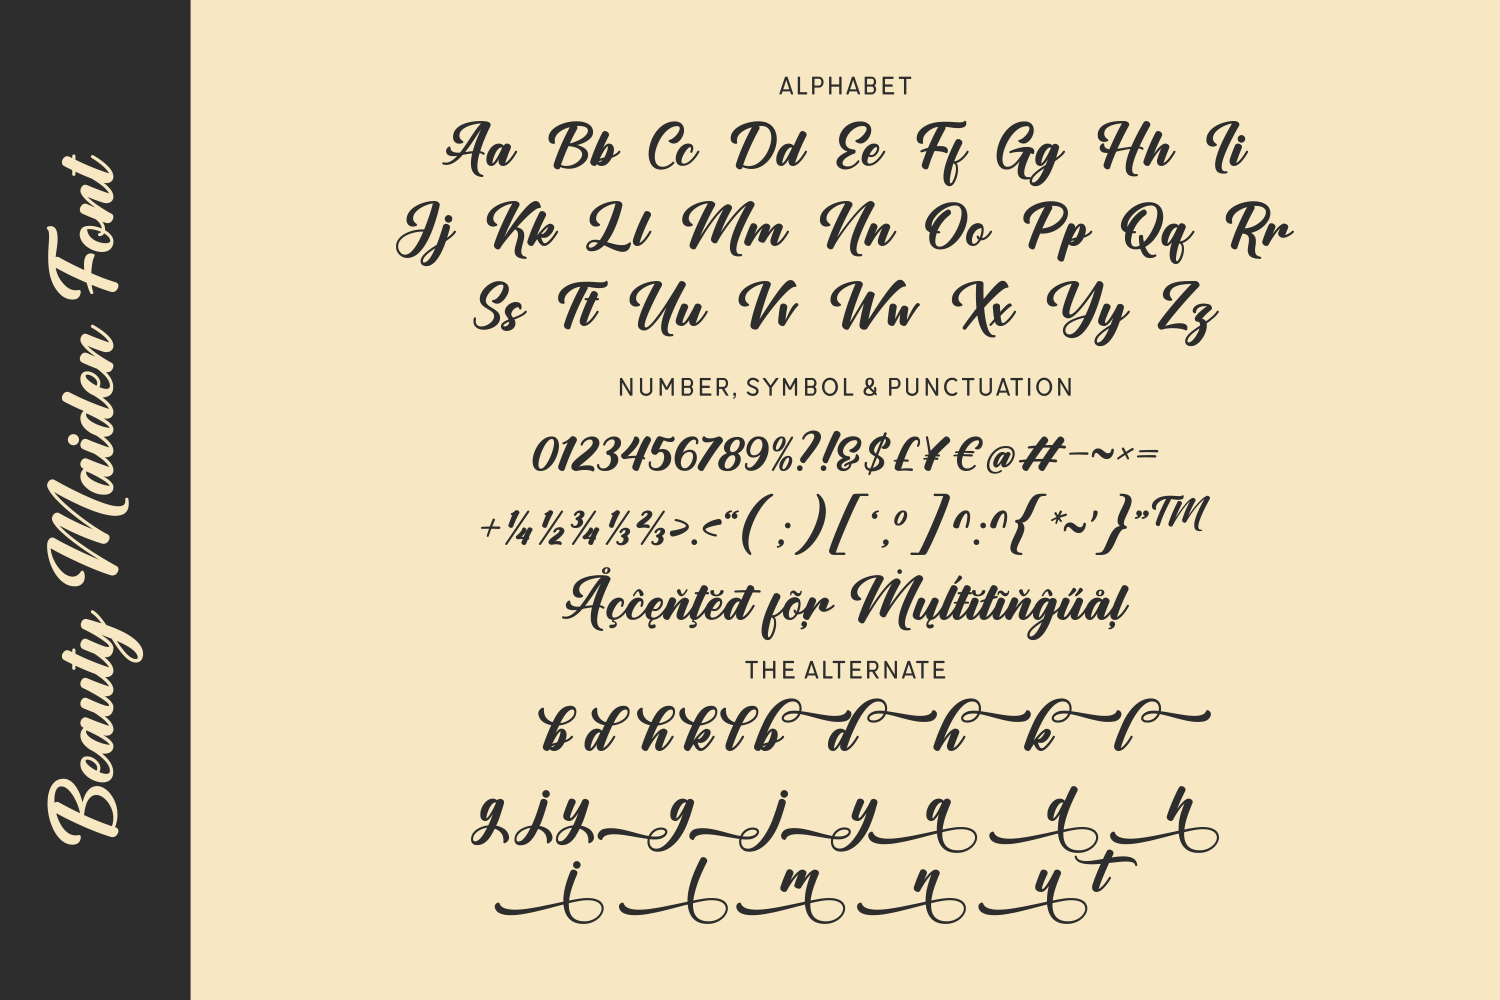 Beauty Maiden Font
ALPHABET
Aa Bb Cc Dd Ee Ff Gg Hh Ii
Jj Kk Ll Mm Nn Oo Pp Qq Rr
Ss Tt Uu Vv Ww Xx Yy Zz
NUMBER, SYMBOL & PUNCTUATION
0123456789%?!&$£¥€@#–~×=
+¼½¾⅓⅔>.<“(;)[‘,º]^:^{*~’}”™
Åçĉęňţĕđ fõŗ Ṁųĺŧĭŧĩňĝűåļ
THE ALTERNATE
b d h k l b d h k l
g j y g j y a d h
i l m n u t